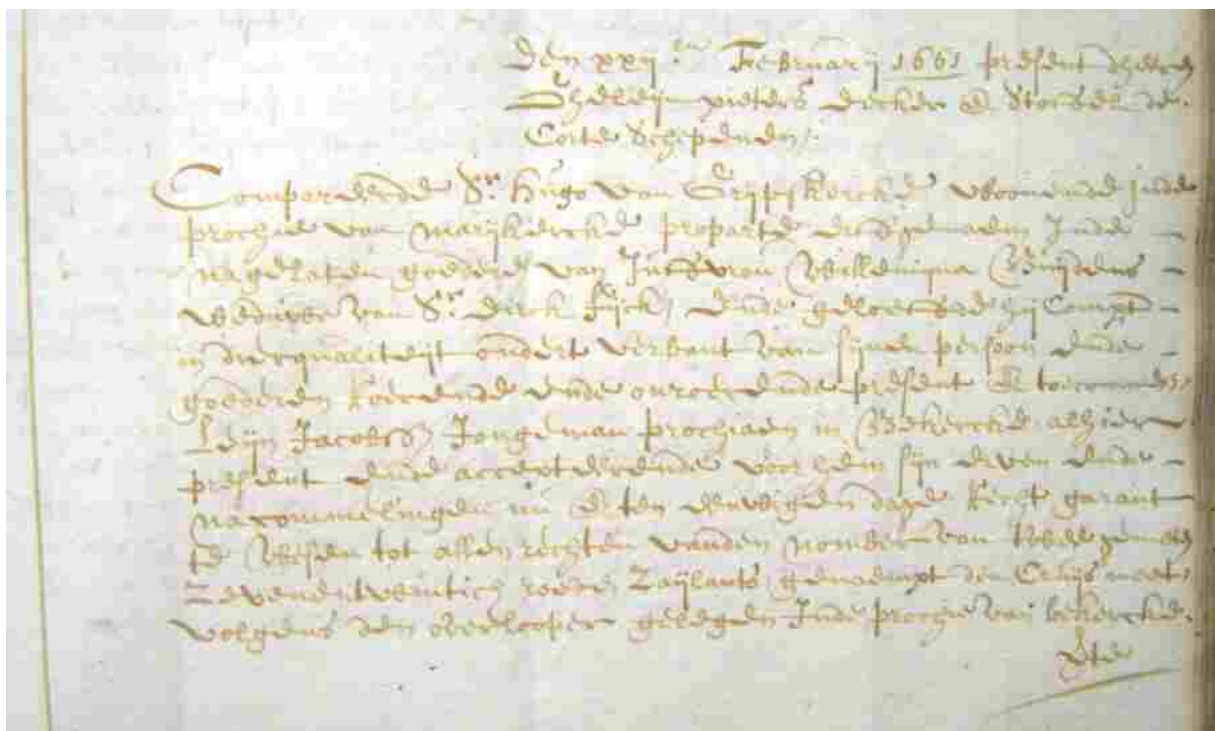 den xxij.en Februarij 1661 present dheeren
Gheleijn pieters dircker & Storsel de
Corte Schepenen /.
Compareerde Sr. Hugo van Grijpskercke woonende inde
prochie van marijkercke proparte in de
nagelaten goederen van Juffvrou Willemijna
weduwe van Sr. Dirck Fijck, ende geloofde hij Compt
in dier qualiteijt onder t verbant van sijnen persoon ende
goederen roerende ende onroerende present & toecommende
Leijn Jacobss Jongeman prochiaen in Bekercke alhier
present ende accepterende voor hem sijn erven ende
nacommelingen nu & ten eeuwigen dage recht garant
te wesen tot allen rechten vanden nomber van twee gemeten
Zevenentwintich roeden Zaijlants, genaempt den
volgens den overlooper gelegen Inde prochie van bekercke.